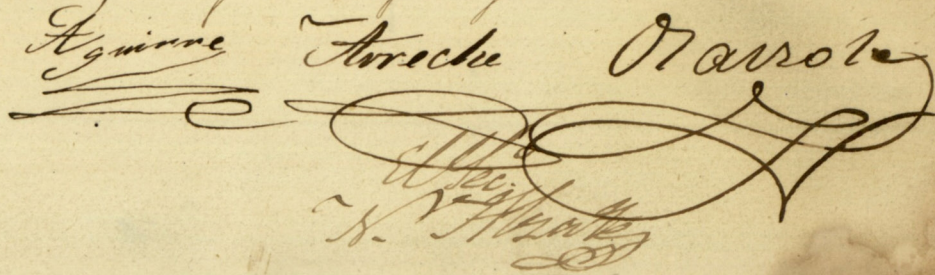 Aguirre Arreche Olarzola
El Sec.º
N. Alzate